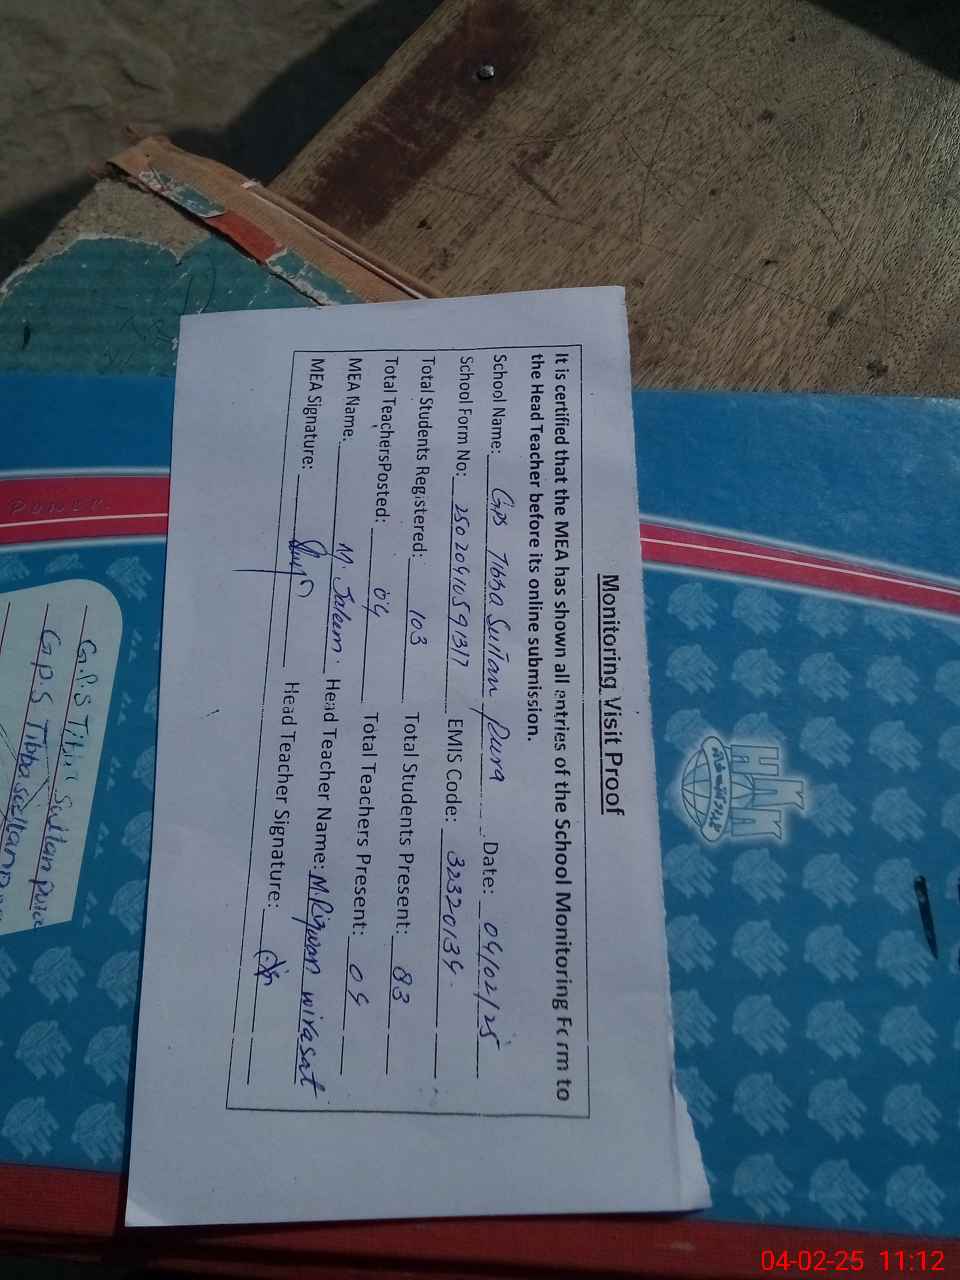 Monitoring Visit Proof
It is certified that the MEA has shown all entries of the School Monitoring Form to
the Head Teacher before its online submission.
School Name: GPS Tibba Sultan Pura Date: 04/02/25
School Form No: 25020410591317 EMIS Code: 32320134
Total Students Registered: 103 Total Students Present: 83
Total TeachersPosted: 04 Total Teachers Present: 04
MEA Name: M. Saleem Head Teacher Name: M. Rizwan wirasat
MEA Signature: Head Teacher Signature:
G.P.S Tibba Sultan Pura
G.P.S Tibba Sultan
04-02-25 11:12